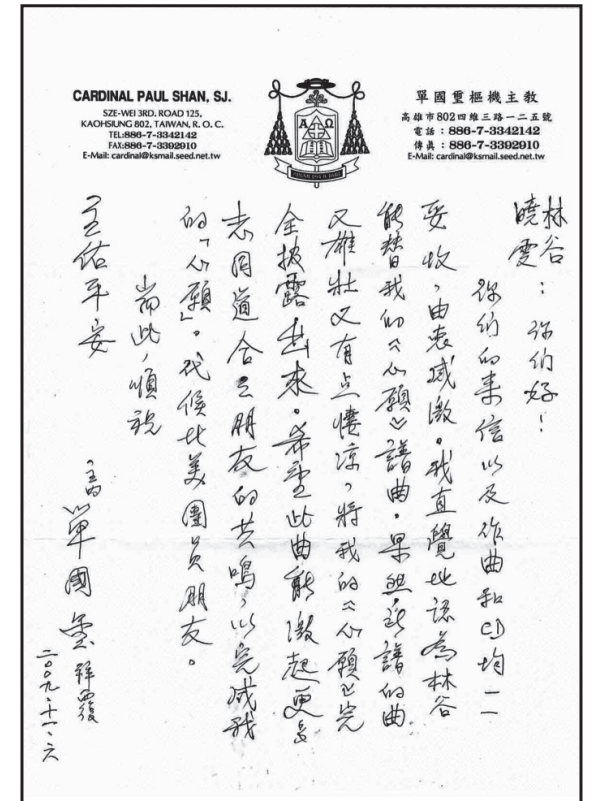 CARDINAL PAUL SHAN, SJ.
SZE-WEI 3RD. ROAD 125,
KAOHSIUNG 802, TAIWAN, R. O. C.
TEL:886-7-3342142
FAX:886-7-3392910
E-Mail: cardinal@ksmail.seed.net.tw
Α Ω
單國璽樞機主教
高雄市802四維三路一二五號
電話：886-7-3342142
傳真：886-7-3392910
E-Mail: cardinal@ksmail.seed.net.tw
林谷
曉雯：你们好！
你们的来信以及作曲和CD均一一
妥收，由衷感激。我直覺地認為林谷
能替我的《心願》譜曲，果然所譜的曲
又雄壯又有点悽涼，將我的《心願》完
全披露出來。希望此曲能激起更多
志同道合之朋友的共鳴，以完成我
的「心願」。代候北美團員朋友。
耑此，順祝
主佑平安
單國璽
二００九、十一、六